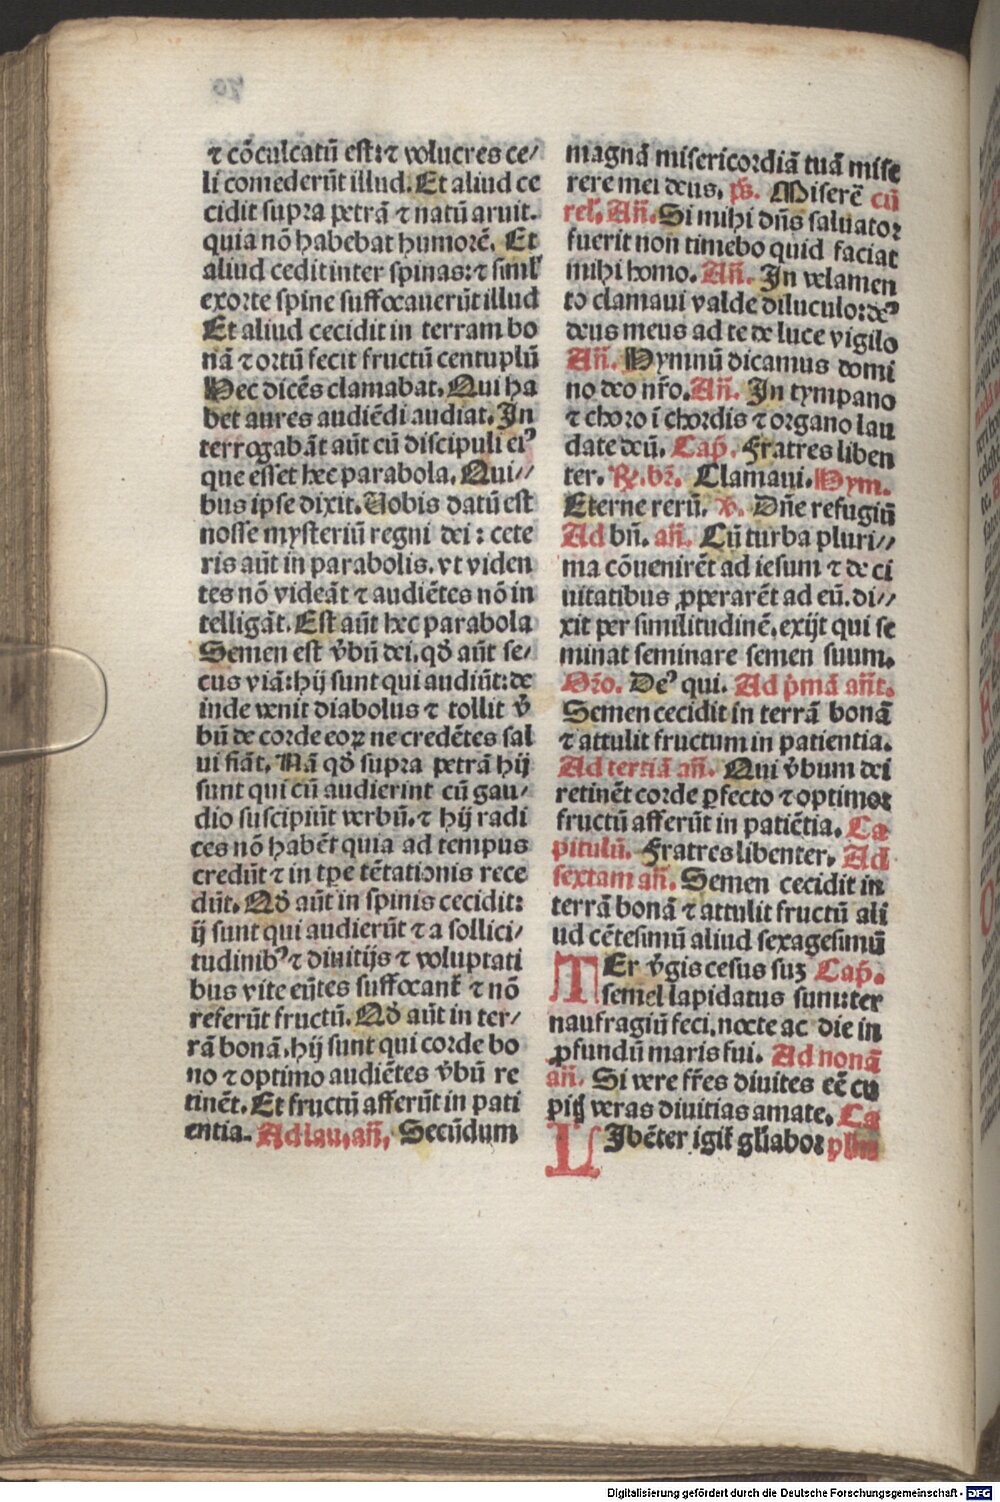 ⁊ cōculcatū est: ⁊ volucres ce/
li comederūt illud. Et aliud ce
cidit supra petrā ⁊ natū aruit.
quia nō habebat humorē. Et
aliud cedit inter spinas: ⁊ siml'
exorte spine suffocauerūt illud
Et aliud cecidit in terram bo
nā ⁊ ortū fecit fructū centuplū
Hec dicēs clamabat. Qui ha
bet aures audiēdi audiat. In
terrogabāt aūt eū discipuli eiꝰ
que esset hec parabola. Qui//
bus ipse dixit. Uobis datū est
nosse mysteriū regni dei: cete
ris aūt in parabolis. vt viden
tes nō videāt ⁊ audiētes nō in
telligāt. Est aūt hec parabola
Semen est v̄bū dei. qd̄ aūt se/
cus viā: hij sunt qui audiūt: de
inde venit diabolus ⁊ tollit v̄
bū de corde eoꝝ ne credētes sal
ui fiāt. Nā qd̄ supra petrā hij
sunt qui cū audierint cū gau/
dio suscipiūt verbū. ⁊ hij radi
ces nō habēt quia ad tempus
credūt ⁊ in tꝑe tētationis rece
dūt. Qd̄ aūt in spinis cecidit:
ij sunt qui audierūt ⁊ a sollici/
tudinibꝰ ⁊ diuitijs ⁊ voluptati
bus vite eūtes suffocant̄ ⁊ nō
referūt fructū. Qd̄ aūt in ter/
rā bonā. hij sunt qui corde bo
no ⁊ optimo audiētes v̄bū re
tinēt. Et fructū afferūt in pati
entia. Ad lau. an̄. Secūdum
magnā misericordiā tuā mise
rere mei deus. p̄s. Miserē cū
rel'. An̄. Si mihi dn̄s saluator
fuerit non timebo quid faciat
mihi homo. An̄. In velamen
to clamaui valde diluculo: deꝰ
deus meus ad te de luce vigilo
An̄. Hymnū dicamus domi
no deo nr̄o. An̄. In tympano
⁊ choro ī chordis ⁊ organo lau
date deū. Cap̄. Fratres liben
ter. ℟. br̄. Clamaui. Hym.
Eterne rerū. ℣. Dn̄e refugiū
Ad bn̄. an̄. Cū turba pluri//
ma cōuenirēt ad iesum ⁊ de ci
uitatibus ꝓperarēt ad eū. di//
xit per similitudinē. exijt qui se
minat seminare semen suum.
Or̄o. Deꝰ qui. Ad p̄mā an̄t.
Semen cecidit in terrā bonā
⁊ attulit fructum in patientia.
Ad tertiā an̄. Qui v̄bum dei
retinēt corde ꝑfecto ⁊ optimo:
fructū afferūt in patiētia. Ca
pitulū. Fratres libenter. Ad
sextam an̄. Semen cecidit in
terrā bonā ⁊ attulit fructū ali
ud cētesimū aliud sexagesimū
TEr v̄gis cesus suꝫ Cap̄.
semel lapidatus sum: ter
naufragiū feci. nocte ac die in
ꝓfundū maris fui. Ad nonā
an̄. Si vere fr̄es diuites eē cu
pitꝭ veras diuitias amate. Ca
LIbēter igit̄ gl'iabor pl'm
Digitalisierung gefördert durch die Deutsche Forschungsgemeinschaft - DFG